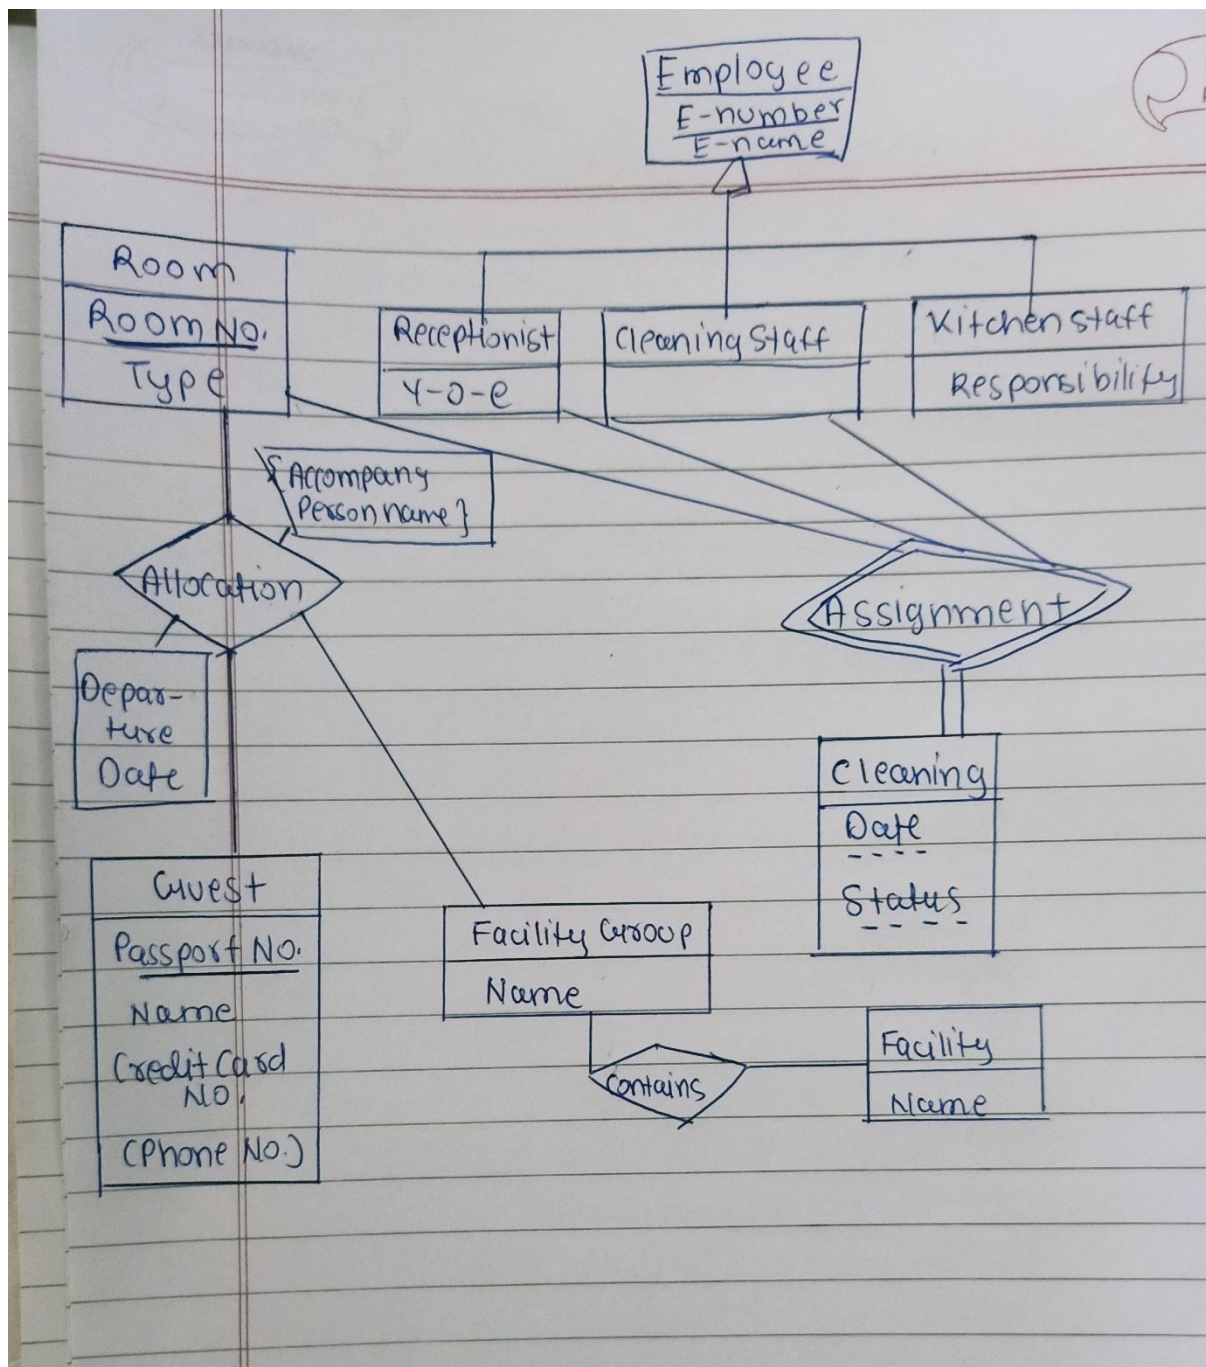 Employee
E-number
E-name
Room
Room No.
Type
Receptionist
Y-O-e
Cleaning Staff
Kitchen Staff
Responsibility
{Accompany
Person name}
Allocation
Depar-
ture
Date
Assignment
Cleaning
Date
Status
Guest
Passport No.
Name
Credit Card
No.
(Phone No.)
Facility Group
Name
Contains
Facility
Name